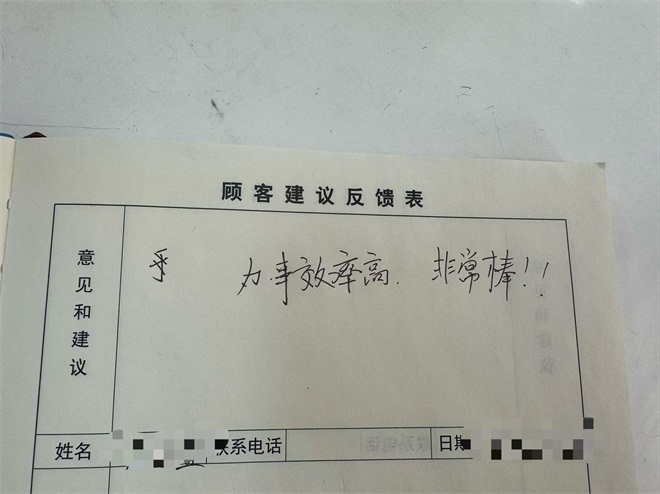 顾客建议反馈表
意见和建议
办事效率高. 非常棒!!
姓名 联系电话 日期